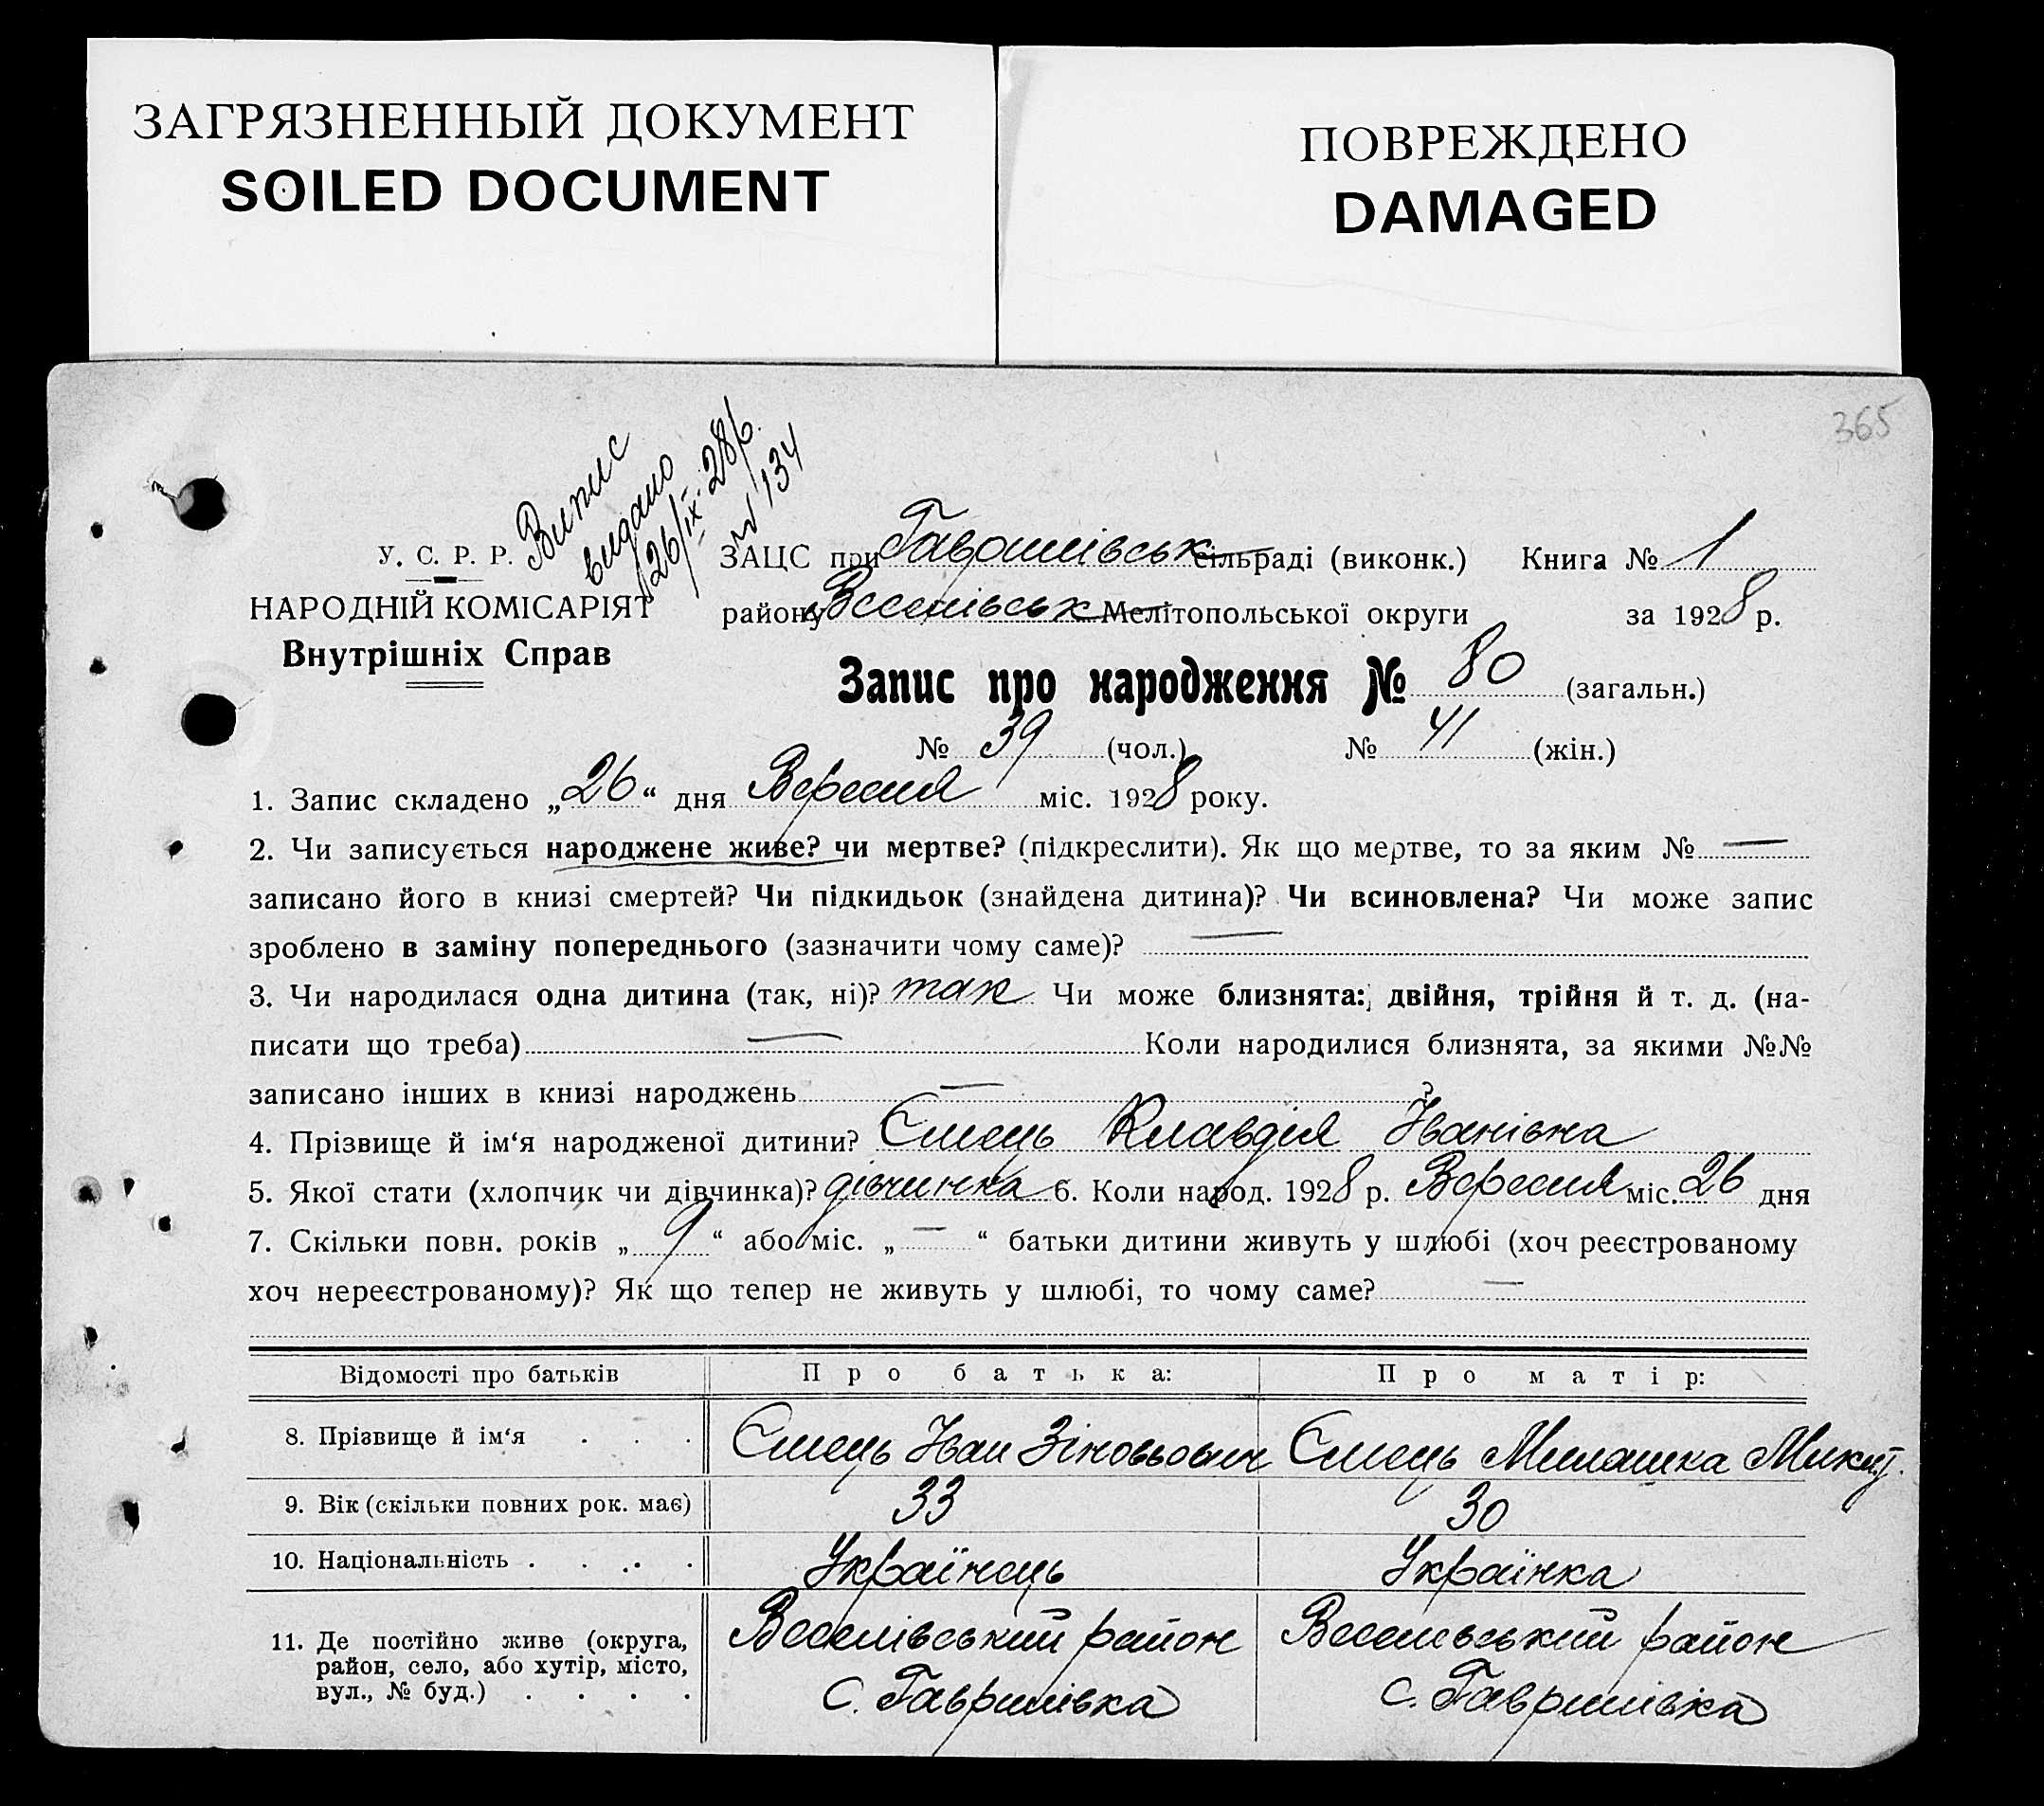 ЗАГРЯЗНЕННЫЙ ДОКУМЕНТ
SOILED DOCUMENT
ПОВРЕЖДЕНО
DAMAGED
365
Випис
видано
26/ІХ-28 р.
№ 134
У. С. Р. Р.
НАРОДНІЙ КОМІСАРІЯТ
Внутрішніх Справ
ЗАЦС при сільраді (виконк.) Книга № 1
району Веселівськ Мелітопольської округи за 1928 р.
Запис про народження № 80 (загальн.)
№ 39 (чол.) № 41 (жін.)
1. Запис складено „26“ дня Вересня міс. 1928 року.
2. Чи записується народжене живе? чи мертве? (підкреслити). Як що мертве, то за яким № —
записано його в книзі смертей? Чи підкидьок (знайдена дитина)? Чи всиновлена? Чи може запис
зроблено в заміну попереднього (зазначити чому саме)? —
3. Чи народилася одна дитина (так, ні)? так Чи може близнята: двійня, трійня й т. д. (на-
писати що треба) — Коли народилися близнята, за якими №№
записано інших в книзі народжень — ?
4. Прізвище й ім‘я народженої дитини? Ємець Клавдія Іванівна
5. Якої стати (хлопчик чи дівчинка)? дівчинка 6. Коли народ. 1928 р. Вересня міс. 26 дня
7. Скільки повн. років „9“ або міс. „—“ батьки дитини живуть у шлюбі (хоч реєстрованому
хоч нереєстрованому)? Як що тепер не живуть у шлюбі, то чому саме? —
Відомості про батьків Про батька: Про матір:
8. Прізвище й ім‘я Ємець Іван Зіновьович Ємець Милашка Микит.
9. Вік (скільки повних рок. має) 33 30
10. Національність Українець Українка
11. Де постійно живе (округа, район, село, або хутір, місто, вул., № буд.) Веселівський район Веселівський район
с. Гаврилівка с. Гаврилівка